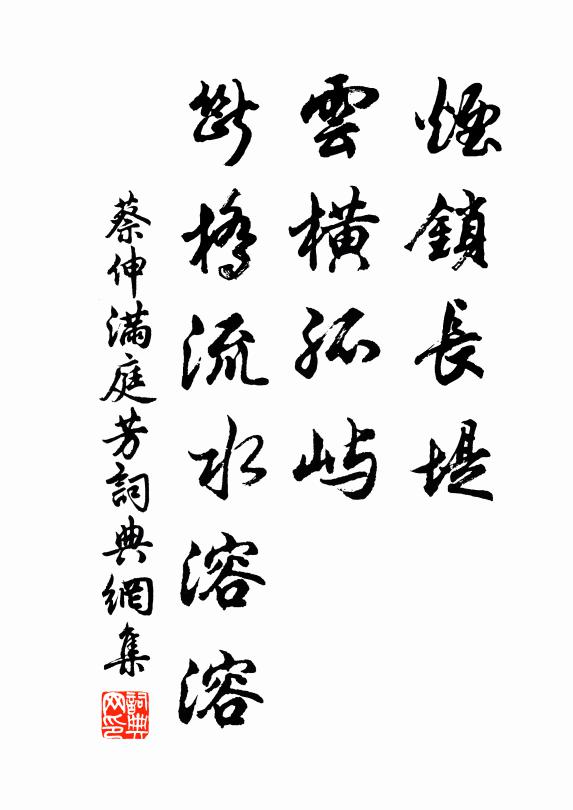 煙鎖長堤
雲橫孤嶼
斷橋流水溶溶
蔡伸滿庭芳詞典網集
詞典網印